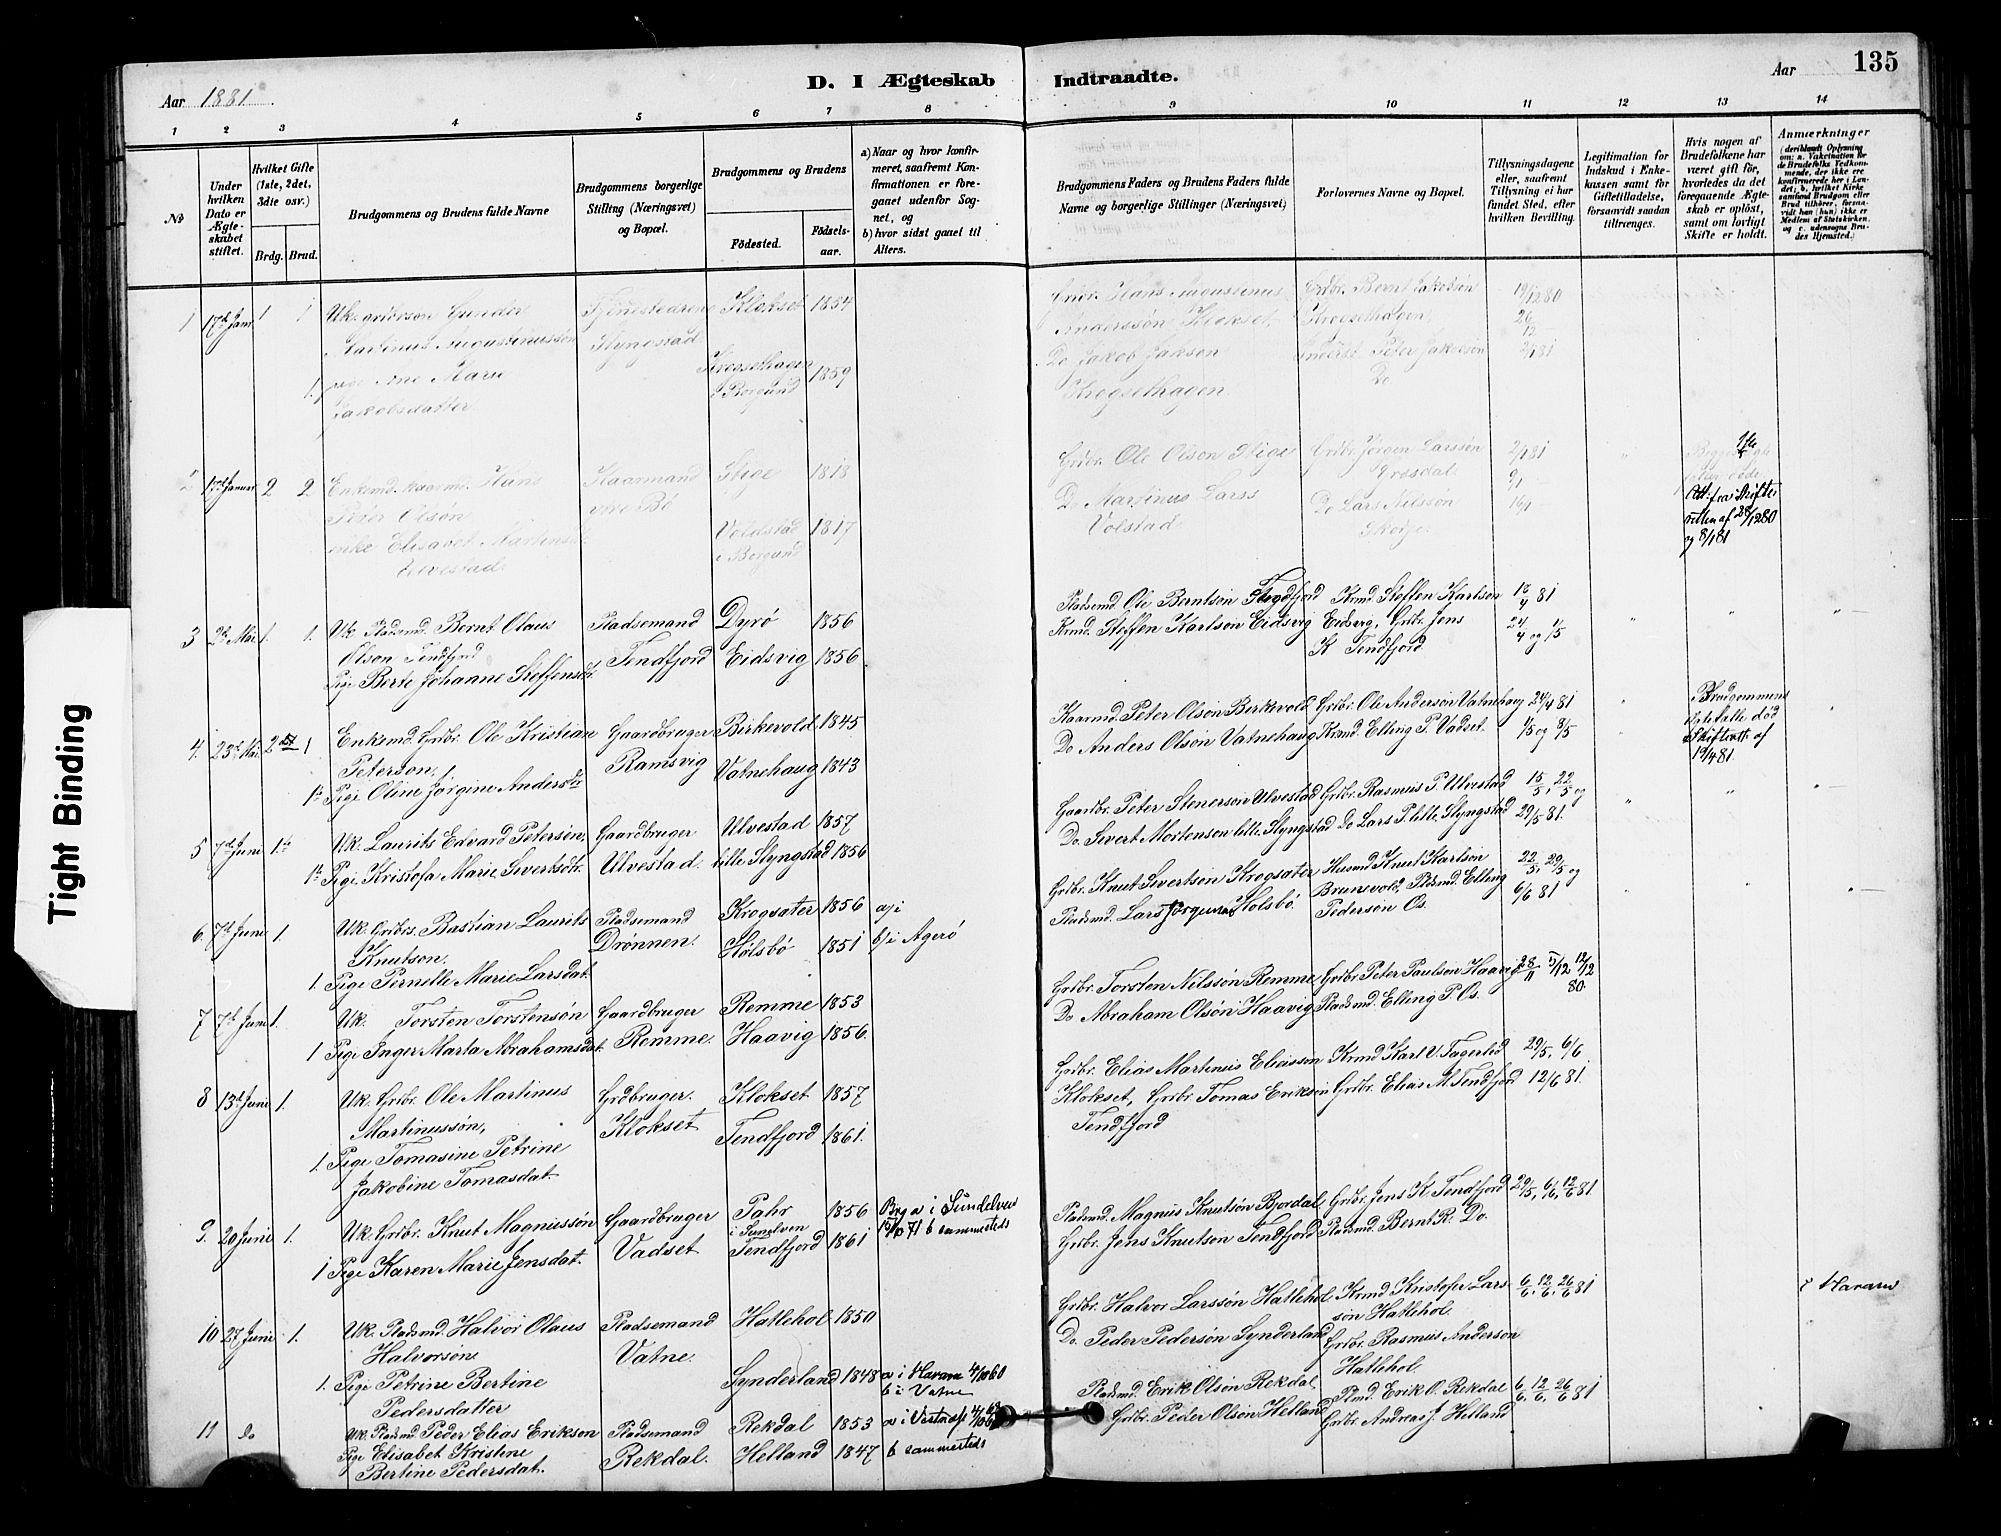 135
D. I Ægteskab Indtraadte.
Aar 1881. Aar
1 2 3 4 5 6 7 8 9 10 11 12 13 14
No
Under hvilken Dato er Ægteskabet stiftet.
Hvilket Gifte (1ste, 2det, 3die osv.)
Brdg. Brud.
Brudgommens og Brudens fulde Navne
Brudgommens borgerlige Stilling (Næringsvei) og Bopæl.
Brudgommens og Brudens
Födested.
Födselsaar.
a) Naar og hvor konfirmeret, saafremt Konfirmationen er foregaaet udenfor Sognet, og
b) hvor sidst gaaet til Alters.
Brudgommens Faders og Brudens Faders fulde Navne og borgerlige Stillinger (Næringsvei)
Forlovernes Navne og Bopæl.
Tillysningsdagene eller, saafremt Tillysning ei har fundet Sted, efter hvilken Bevilling.
Legitimation for Indskud i Enkekassen samt for Giftetilladelse, forsaavidt saadan tiltrænges.
Hvis nogen af Brudefolkene har været gift før, hvorledes da det foregaaende Ægteskab er opløst, samt om lovligt Skifte er holdt.
Anmærkninger
1 17d Jan 1 1 Uk. Gunder
Martinus Augustinussøn
1. Pige Ane Marie
Jakobsdatter
Slyngstad
Klokset 1854
Krogsethagen
i Borgund 1859
Grdbr. Hans Augustinus
Anderssøn Klokset,
Do Jakob
Krogsethagen
Grdbr. Bernt Jakobsøn
Krogsethagen,
Peter Jakobsøn
Do
19/12 80
26/12
2/1 81
2 17d Januar 2 2 Enkemd. Kaarmd. Hans
Peter Olsøn
Enke Elisabet Martinsd.
Ulvestad
Kaarmand
Bö
Stige 1818
Voldstad
i Borgund 1817
Grdbr. Ole Olson Stige
Do Martinus Larss
Volstad
Grdbr. Jörgen Larssön
Do Lars Nilssön
Skorje.
2/1 81
9/1 -
16/1 -
Att. fra Skifteretten af 28/12 80
og 8/1 81
3 2d Mai 1. 1. Uk Pladsmd. Bernt Olaus
Olson Tendfjord
Pige Berte Johanne Steffensd.
Pladsemand
Tendfjord
Dyrö 1856
Eidsvig 1856.
Pladsemd Ole Berntsön Tendfjord
Krmd. Steffen Karlsön Eidsvig
Krmd. Steffen Karlsön
Eidsvig, Grdbr. Jens
K Tendfjord.
18/4 81
24/4 og 1/5
4. 23d Mai 2det 1 Enkemd. Grdbr. Ole Kristian
Peterson.
1te Pige Oline Jörgine Andersdtr
Gaardbruger
Ramsvig
Birkevold 1845
Vatnehaug 1843
Kaarmd. Peter Olsön Berkevold
Do Anders Olsön Vatnehaug
Grdbr. Ole Andersön Vatnehaug
Krmd. Elling P. Vadset.
24/4 81
1/5 og 8/5
Brudgommens
død
Skifteatt. af
19/4 81.
5 7d Juni 1te Uk. Laurits Edvard Petersön,
1te Pige Kristofa Marie Sivertsdtr.
Gaardbruger
Ulvestad.
Ulvestad 1857
lille Slyngstad 1856
Gaardbr. Peter Stenersön Ulvestad
Do. Sivert Mortensön lille Slyngstad
Grdbr. Rasmus P. Ulvestad
Do Lars P. lille Slyngstad
15/5, 22/5 og
29/5 81.
6. 7d Juni 1. Uk. Grdbrs. Bastian Laurits
Knutsön.
1. Pige Pernelle Marie Larsdat.
Pladsemand
Drönnen.
Krogsater 1856
Holsbö 1851
a/i
b/i Agerö
Grdbr. Knut Sivertsön Krogsater
Pladsmd. Lars Jörgensen Holsbö
Husmd Knut Karlsön
Brunsvold, Pladsmd. Elling
Pedersön Os.
22/5, 29/5 og
6/6 81
7 7d Juni 1. Uk. Torsten Torstensön
1 Pige Inger Marta Abrahamsdat.
Gaardbruger
Remme.
Remme 1853
Haavig 1856.
Grdbr. Torsten Nilssön Remme
Do Abraham Olsön Haavig
Grdbr. Peter Paulsön Haavig
Pladsmd. Elling P. Os.
28/11 5/12 12/12
80.
8 13d Juni 1. Uk. Grdbr. Ole Martinus
Martinussön,
1. Pige Tomasine Petrine
Jakobine Tomasdat.
Grdbruger.
Klokset
Klokset 1857
Tendfjord 1861.
Grdbr. Elias Martinus Eliasson
Klokset, Grdbr. Tomas Eriksön
Tendfjord
Krmd Karl V. Fagerlid
Grdbr. Elias M. Tendfjord
29/5, 6/6
12/6 81.
9. 20 Juni 1. Uk. Grdbr. Knut Magnussön
1 Pige Karen Marie Jensdat.
Gaardbruger
Vadset
Pahr
i Sunelven 1856
Tendfjord 1861
Brg a i Sundelven
15/10 71 b sammesteds
Pladsmd. Magnus Knutsön Bjordal
Grdbr. Jens Knutson Tendfjord
Grdbr. Jens K. Tendfjord
Pladsmd. Bernt R. Do.
29/5, 6/6, 12/6 81
10 27 Juni 1. Uk. Pladsmd. Halvor Olaus
Halvorsön.
1. Pige Petrine Bertine
Pedersdatter
Pladsemand
Vatne.
Hatlehol 1850
Synderland 1848
a i Haram 4/10 60
b i Vatne
Grdbr. Halvor Larssön Hatlehol
Do. Peder Pedersön Synderland
Krmd Kristofer Lars-
sön Hatlehol.
Grdbr. Rasmus Andersen
Hatlehol.
6/6, 12/6, 26/6 81
i Haram
11 do Uk. Pladsmd Peder Elias Erikson
Pige Elisabet Kristine
Bertine Pedersdat.
Pladsemand
Rekdal.
Rekdal 1853
Helland 1847
a i Vestnæs
b sammesteds
Pladsmd. Erik Olsön Rekdal
Grdbr. Peder Olsön Helland
Plmd Erik O. Rekdal
Grdbr. Andreas J. Helland
6/6, 12/6, 26/6 81
Tight Binding